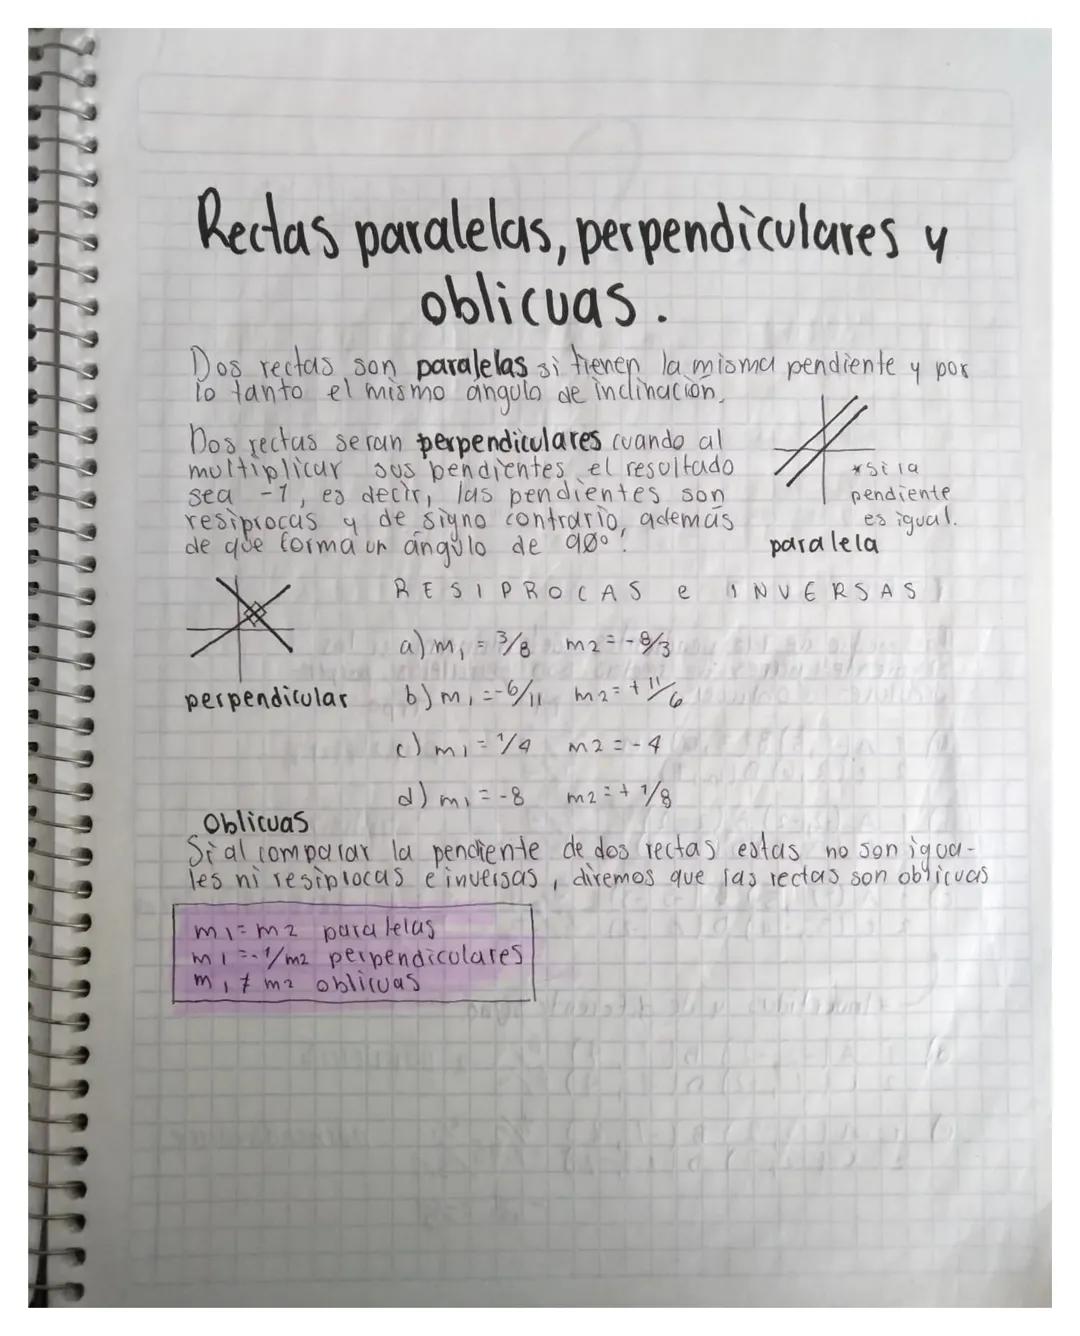 Rectas paralelas, perpendiculares y
oblicuas.
Dos rectas son paralelas si tienen la misma pendiente y por
lo tanto el mismo ángulo de inclinación.
Dos rectas seran perpendiculares cuando al
multiplicar sus pendientes el resultado
sea -1, es decir, las pendientes son
resiprocas y de signo contrario, además
de que forma un ángulo de 90°.
*si la
pendiente
es igual.
paralela
RESIPROCAS e INVERSAS
a) m1 = 3/8 m2 = -8/3
perpendicular
b) m1 = -6/11 m2 = + 11/6
c) m1 = 1/4 m2 = -4
d) m1 = -8 m2 = + 1/8
Oblicuas
Si al comparar la pendiente de dos rectas estas no son igua-
les ni resiprocas e inversas, diremos que las rectas son oblicuas
m1 = m2 paralelas
m1 = -1/m2 perpendiculares
m1 ≠ m2 oblicuas